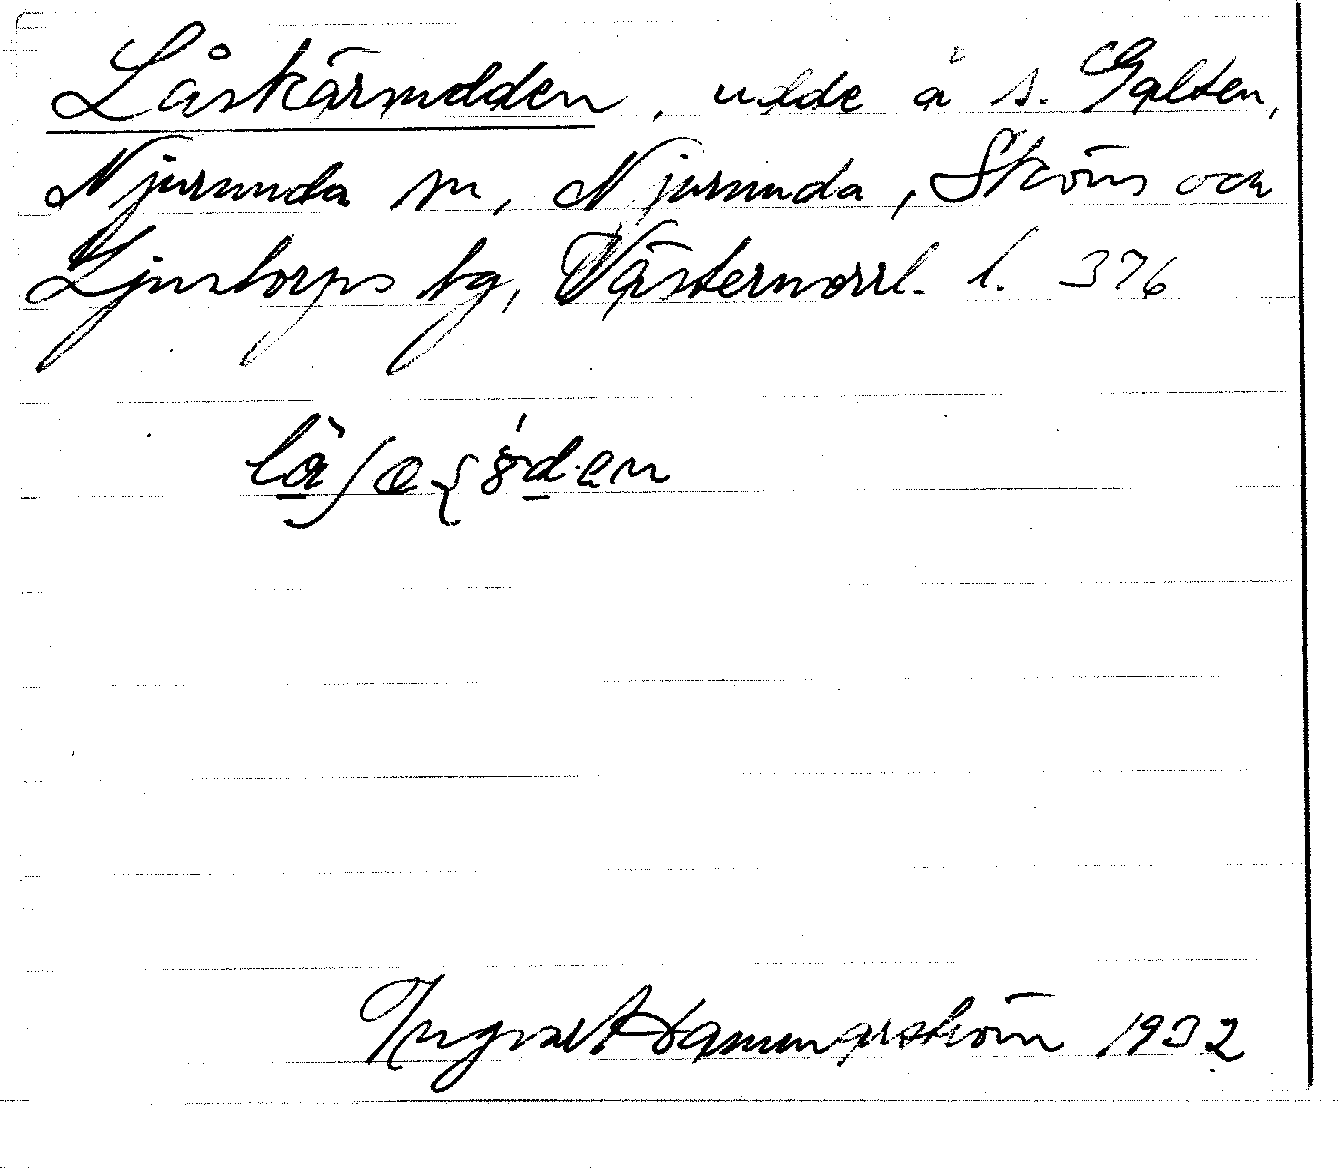 Låskärsudden, udde å s. Galten,
Njurunda sn, Njurunda, Sköns och
Ljustorps tg, Västernorrl. l. 376
Ingvar Hammarström 1932